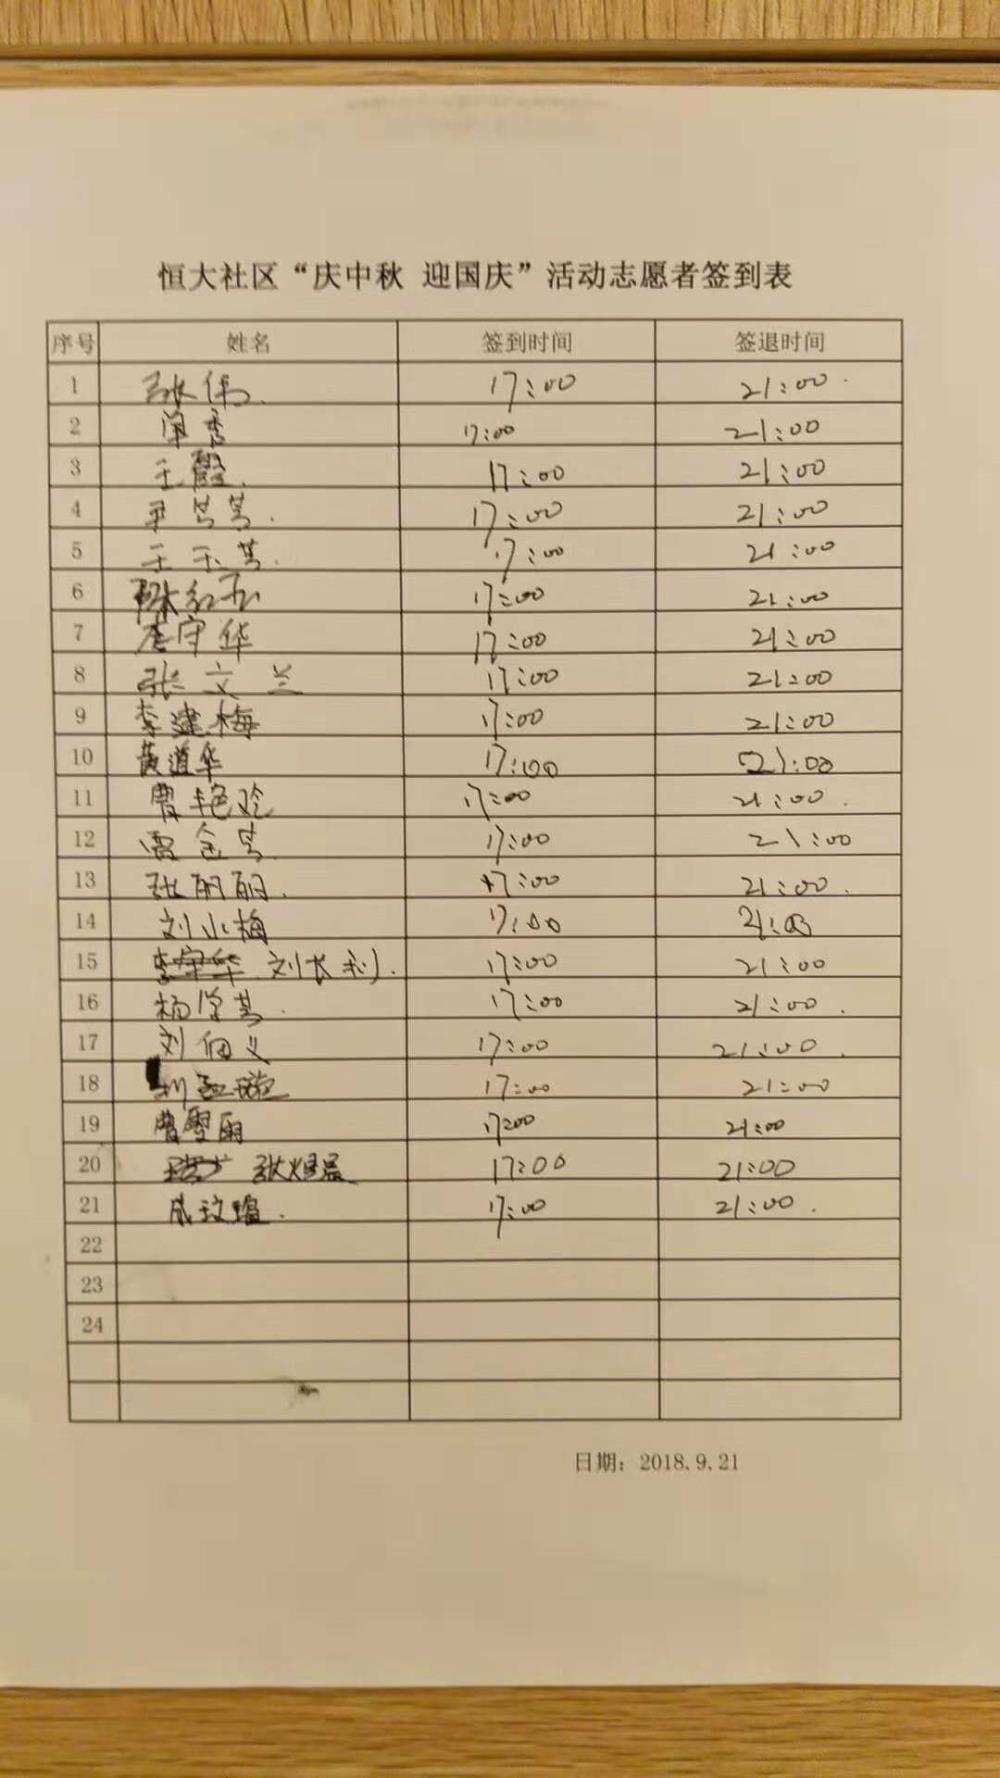 恒大社区“庆中秋 迎国庆”活动志愿者签到表
序号 姓名 签到时间 签退时间
1 张伟. 17:00 21:00
2 单秀 17:00 21:00
3 王霞. 17:00 21:00
4 17:00 21:00
5 王玉芳. 17:00 21:00
6 17:00 21:00
7 守华 17:00 21:00
8 张文兰 17:00 21:00
9 李建梅 17:00 21:00
10 黄道华 17:00 21:00
11 曹艳玲 17:00 21:00.
12 雷金芳 17:00 21:00
13 张丽丽. 17:00 21:00.
14 刘小梅 17:00 21:00
15 刘长利. 17:00 21:00
16 杨 17:00 21:00.
17 刘佃义 17:00 21:00.
18 17:00 21:00
19 曹雪丽 17:00 21:00
20 张煜晨 17:00 21:00
21 17:00 21:00.
22
23
24
日期：2018.9.21